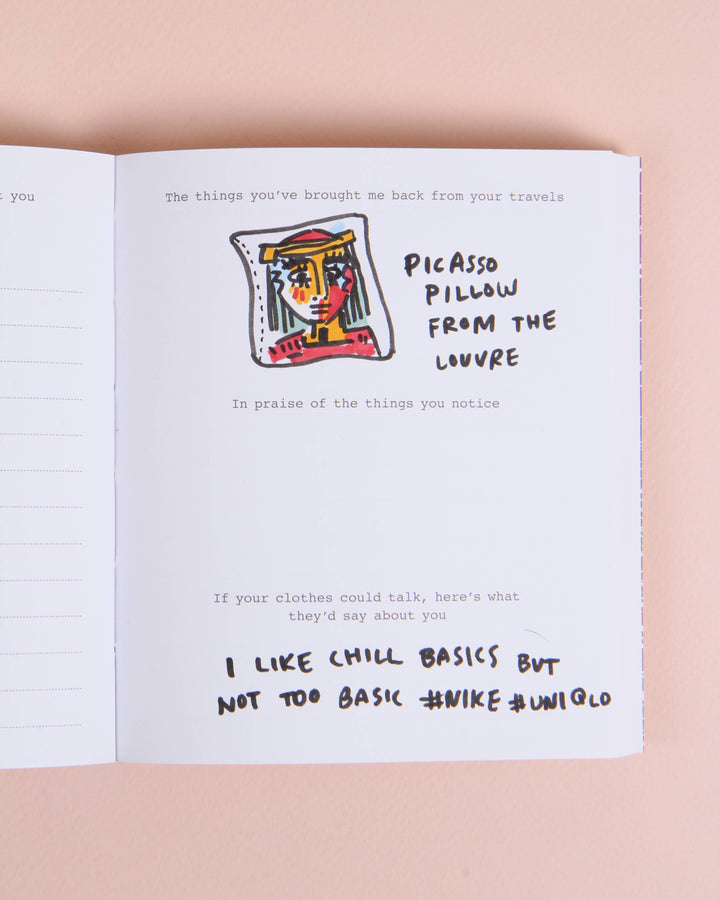 t you
The things you've brought me back from your travels
PICASSO
PILLOW
FROM THE
LOUVRE
In praise of the things you notice
If your clothes could talk, here's what
they'd say about you
I LIKE CHILL BASICS BUT
NOT TOO BASIC #NIKE #UNIQLO